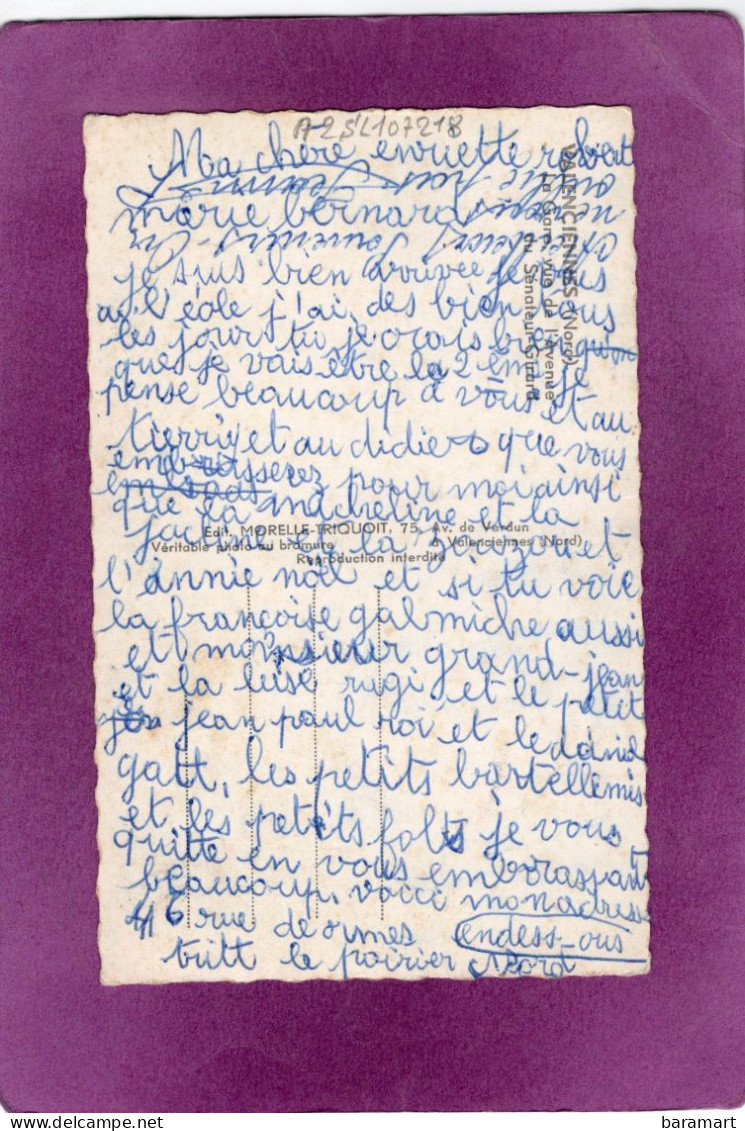 A2SL107218
Ma chère enriette robert
marie bernard
je suis bien arrivée je vais
a l'éole j'ai des bien tous
les jour tu je crois bien
que je vais être la 2 ème je
pense beaucoup à vous et au
tierri et au didier que vous
embrasserez pour moi ainsi
que la micheline et la
jacline et la et
l'annie noël et si tu voie
la françoise galmiche aussi
et monsieur grand-jean
et la luse rugi et le petit
jean paul roi et le danid
gatt, les petits bartellemis
et les petits folts je vous
quitte en vous embrassant
beaucoup, voici mon adresse
46 rue de ormes endess-ous
tritt le poirier Nord
VALENCIENNES (Nord)
La Gare, vue de l'Avenue
du Sénateur-Girard
Edit. MORELLE-TRIQUOIT, 75, Av. de Verdun
Véritable photo au bromure à Valenciennes (Nord)
Reproduction interdite
baramart